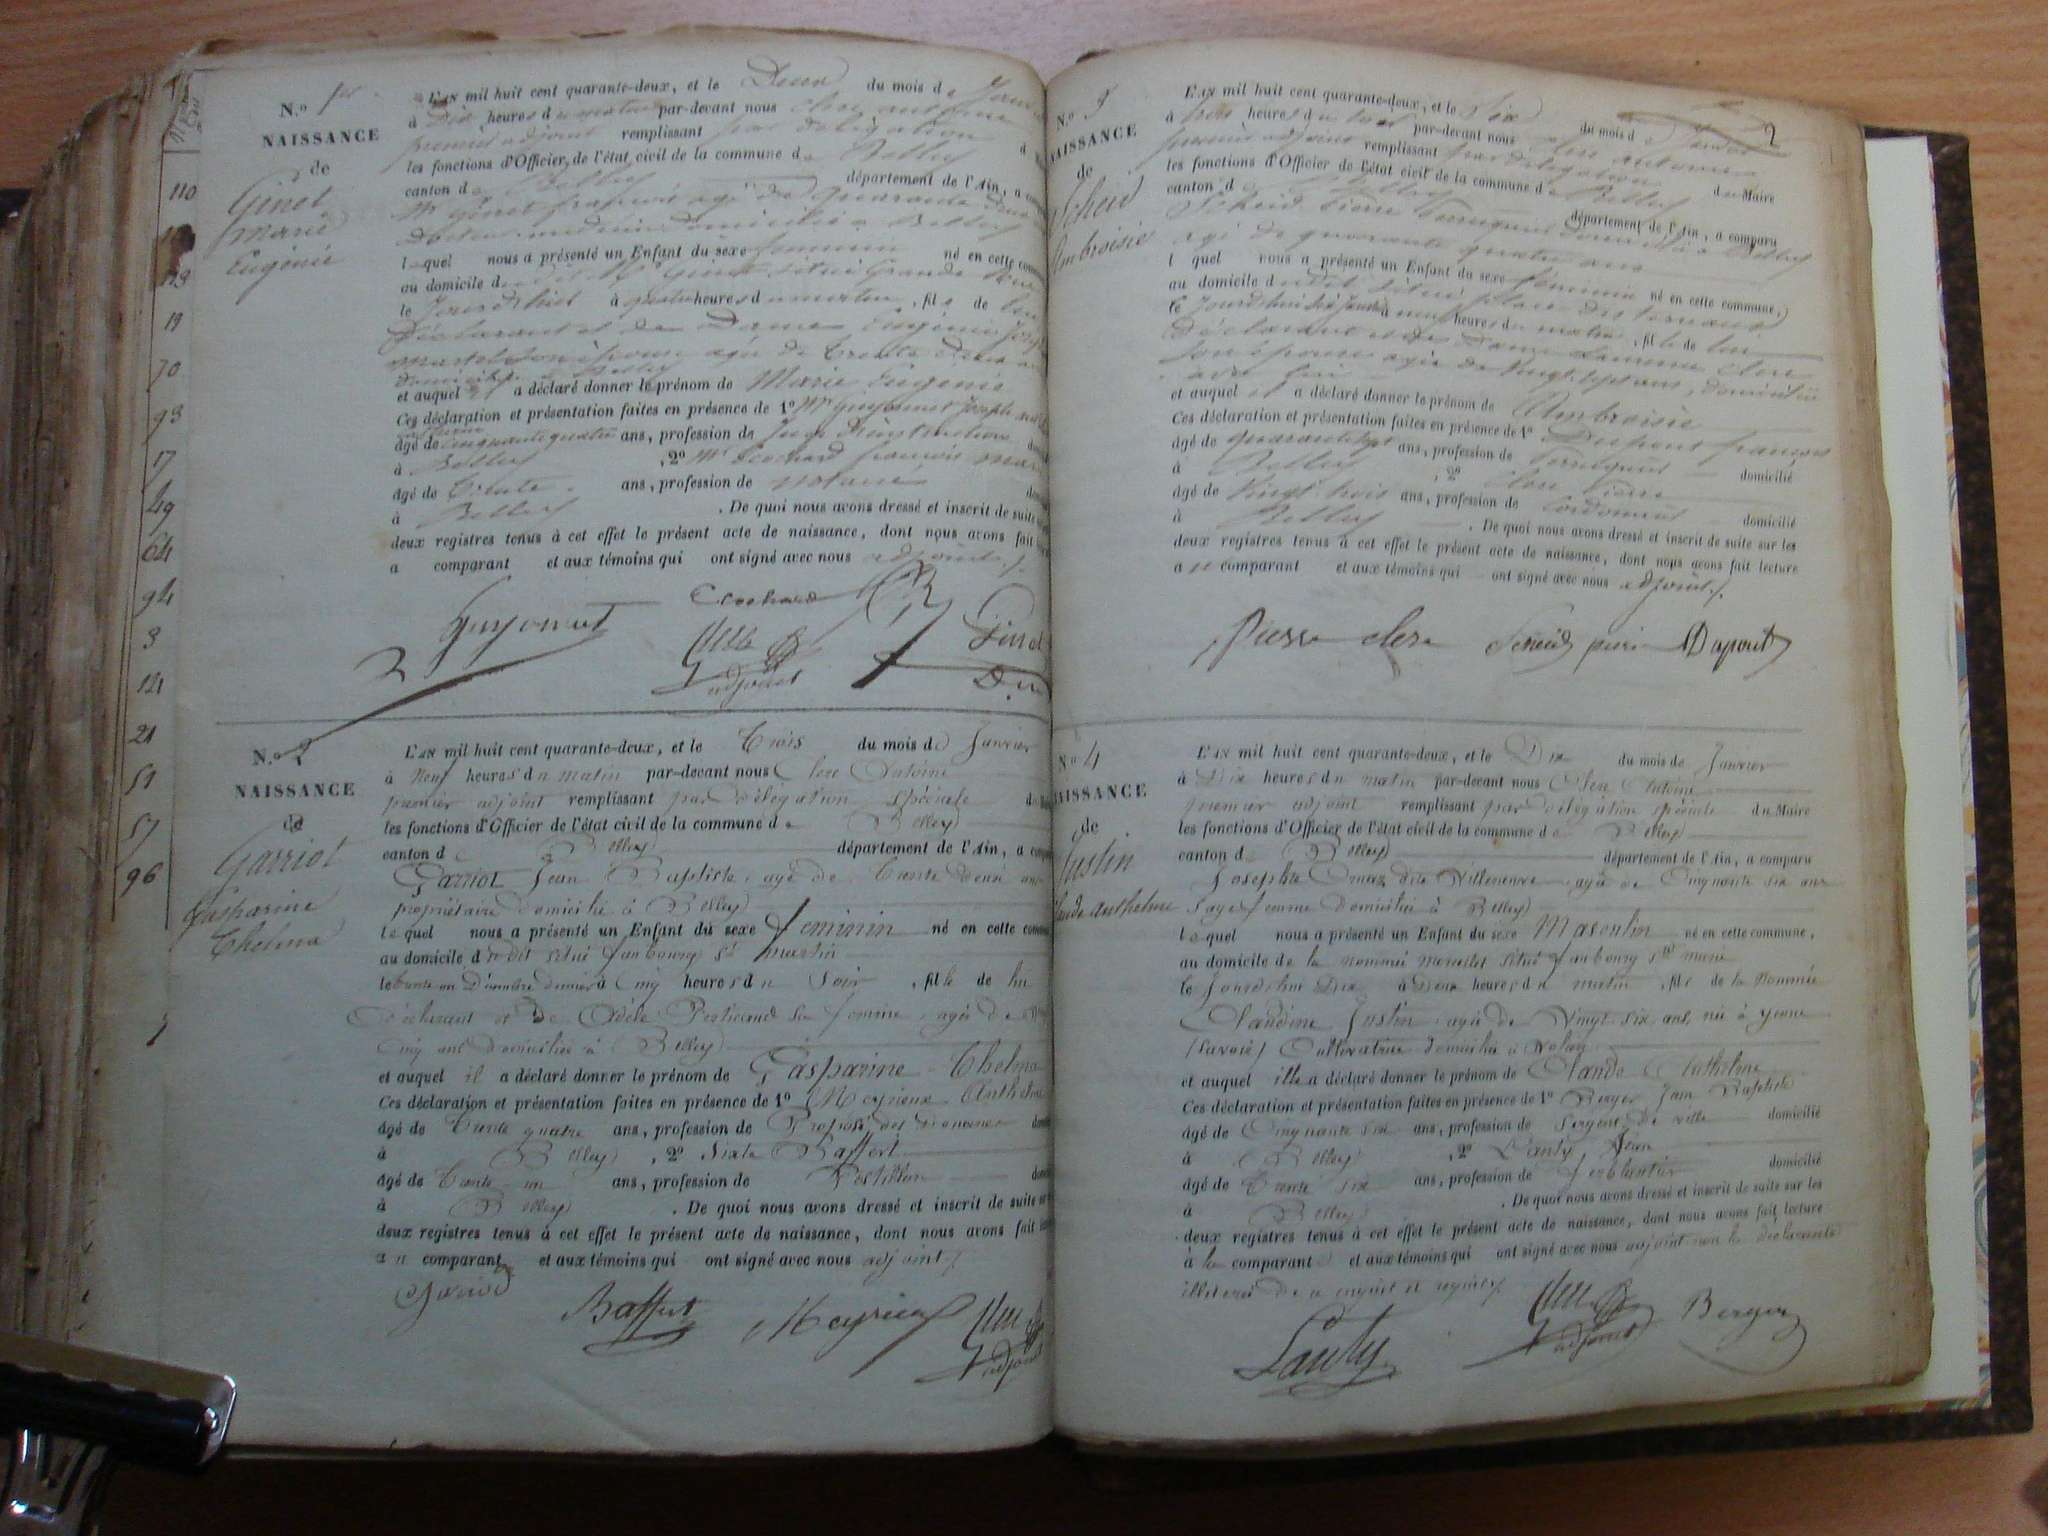 110
113
19
70
93
17
49
64
94
3
121
21
51
57
96
N.o 1er
NAISSANCE
de
Ginet
Marie
Eugénie
L'AN mil huit cent quarante-deux, et le Deux du mois de
à Dix heures du matin par-devant nous Clerc antoine
premier adjoint remplissant par délégation
les fonctions d'Officier de l'état civil de la commune de Belley
canton de Belley département de l'Ain, a
Mr Ginet françois agé de quarante deux
Docteur médecin domicilié à Belley
lequel nous a présenté un Enfant du sexe féminin né en cette
au domicile dudit Mr Ginet situé Grande Rue
le Jourd'hui à quatre heures du matin, fille de lui
Déclarant et de Dame Eugénie
son épouse agée de trente deux
domiciliée à Belley
et auquel il a déclaré donner le prénom de Marie Eugénie
Ces déclaration et présentation faites en présence de 1o Mr Guyonnet Joseph
âgé de cinquante quatre ans, profession de Juge D'instruction
à Belley, 2o Mr Cochard françois
âgé de trente ans, profession de notaire
à Belley. De quoi nous avons dressé et inscrit de suite
deux registres tenus à cet effet le présent acte de naissance, dont nous avons fait
a comparant et aux témoins qui ont signé avec nous adjoint./.
Guyonnet Cochard Ginet
Clerc
adjoint
N.o 2
NAISSANCE
de
Garriot
Gasparine
Thelma
L'AN mil huit cent quarante-deux, et le Trois du mois de Janvier
à Neuf heures du matin par-devant nous Clerc Antoine
premier adjoint remplissant par délégation spéciale
les fonctions d'Officier de l'état civil de la commune de Belley
canton de Belley département de l'Ain, a
Garriot Jean Baptiste agé de Trente Deux ans
propriétaire domicilié à Belley
lequel nous a présenté un Enfant du sexe féminin né en cette
au domicile du dit situé faubourg St martin
le trente un Décembre dernier à Cinq heures du Soir, fille de lui
Déclarant et de Adèle sa femme, agée de
Cinq ans domiciliée à Belley
et auquel il a déclaré donner le prénom de Gasparine Thelma
Ces déclaration et présentation faites en présence de 1o Meyrieux Anthelme
âgé de Trente quatre ans, profession de Préposé des
à Belley, 2o Sixte Baffert
âgé de Trente un ans, profession de Postillon
à Belley. De quoi nous avons dressé et inscrit de suite
deux registres tenus à cet effet le présent acte de naissance, dont nous avons fait
au comparant et aux témoins qui ont signé avec nous adjoint./.
Baffert Meyrieux Clerc
adjoint
2
N.o 3
NAISSANCE
de
Scheid
Ambroisie
L'AN mil huit cent quarante-deux, et le Six du mois de Janvier
à trois heures du soir par-devant nous Clerc antoine
premier adjoint remplissant par délégation du Maire
les fonctions d'Officier de l'état civil de la commune de Belley
canton de Belley département de l'Ain, a comparu
Scheid Pierre Perruquier domicilié à Belley
agé de quarante quatre ans
lequel nous a présenté un Enfant du sexe féminin né en cette commune,
au domicile dudit situé place des terreaux
le Jourd'hui Six Janvier à neuf heures du matin, fille de lui
déclarant et de Dame Laurence Clerc
son épouse agée de vingt sept ans, domiciliée
avec lui
et auquel il a déclaré donner le prénom de Ambroisie
Ces déclaration et présentation faites en présence de 1o Dupont françois
âgé de quarante sept ans, profession de Perruquier domicilié
à Belley, 2o Clerc Pierre
âgé de vingt trois ans, profession de Cordonnier domicilié
à Belley. De quoi nous avons dressé et inscrit de suite sur les
deux registres tenus à cet effet le présent acte de naissance, dont nous avons fait lecture
au comparant et aux témoins qui ont signé avec nous adjoint./.
Pierre clerc Scheid pierre Dupont
No 4
NAISSANCE
de
Justin
Claude Anthelme
L'AN mil huit cent quarante-deux, et le Dix du mois de Janvier
à Dix heures du matin par-devant nous Clerc Antoine
premier adjoint remplissant par délégation spéciale du Maire
les fonctions d'Officier de l'état civil de la commune de Belley
canton de Belley département de l'Ain, a comparu
Josephte dite Villeneuve agée de Cinquante six ans
Sage femme Domiciliée à Belley
lequel nous a présenté un Enfant du sexe Masculin né en cette commune,
au domicile de la nommée situé faubourg
le Jourd'hui Dix à Deux heures du matin, fils de la Nommée
Claudine Justin agée de Vingt six ans, née à yenne
(Savoie) Cultivatrice domiciliée à
et auquel elle a déclaré donner le prénom de Claude Anthelme
Ces déclaration et présentation faites en présence de 1o Berger Jean Baptiste
âgé de Cinquante six ans, profession de Sergent de ville domicilié
à Belley, 2o Lauty Jean
âgé de Trente six ans, profession de ferblantier domicilié
à Belley. De quoi nous avons dressé et inscrit de suite sur les
deux registres tenus à cet effet le présent acte de naissance, dont nous avons fait lecture
à la comparant et aux témoins qui ont signé avec nous adjoint non la déclarante
illeterée de ce enquise et requise./.
Lauty Clerc adjoint Berger